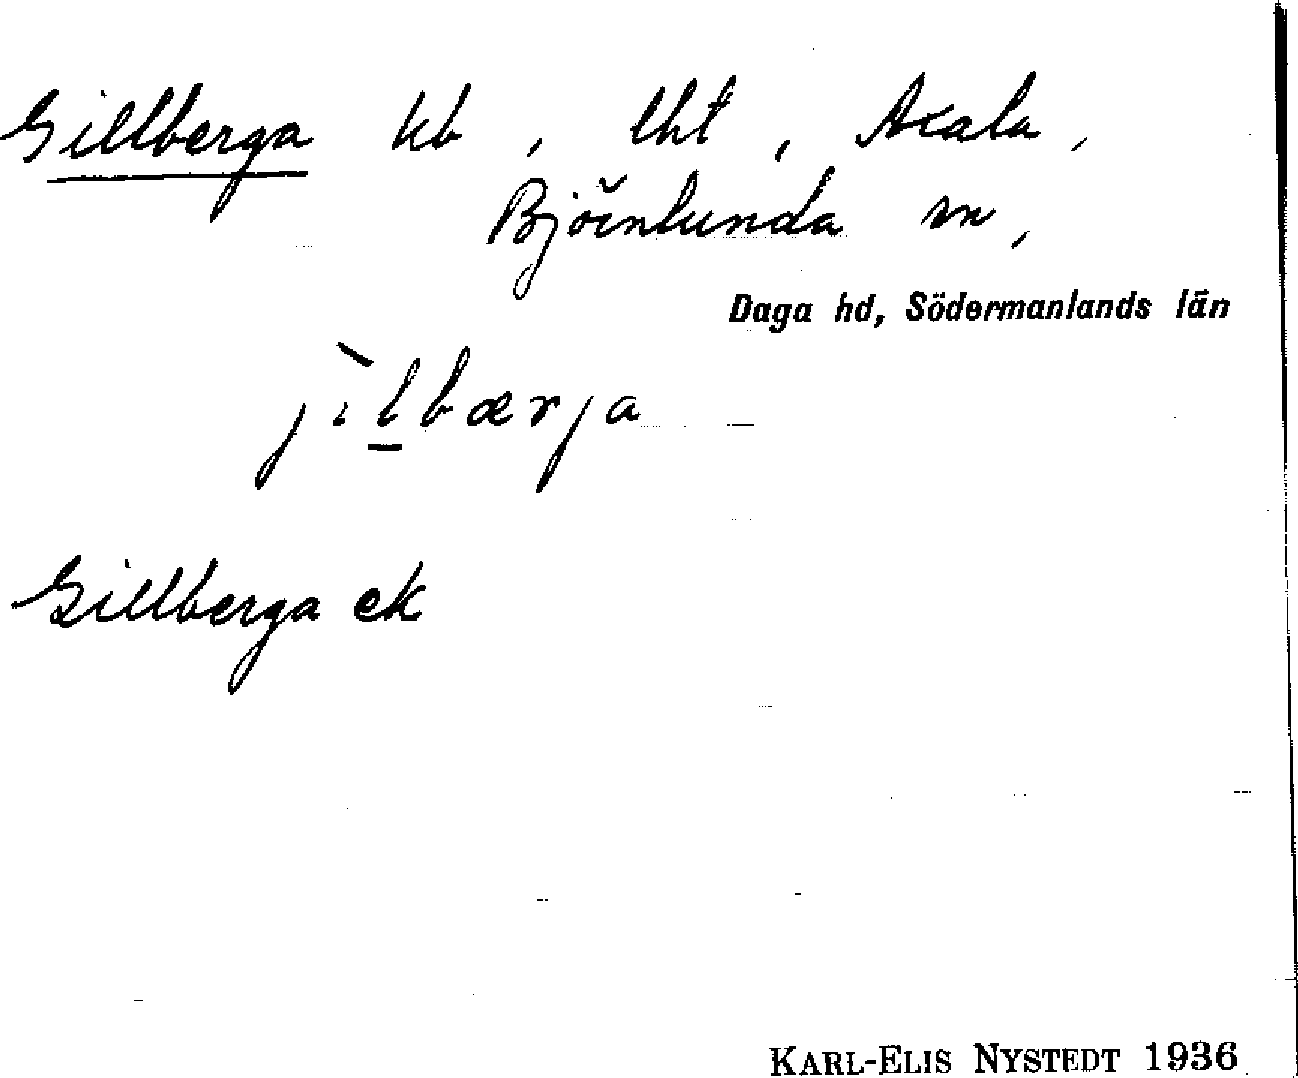 Gillberga kb, lht, Axala,
Björnlunda sn,
Daga hd, Södermanlands län
jìḻbærja
Gillberga ek
KARL-ELIS NYSTEDT 1936